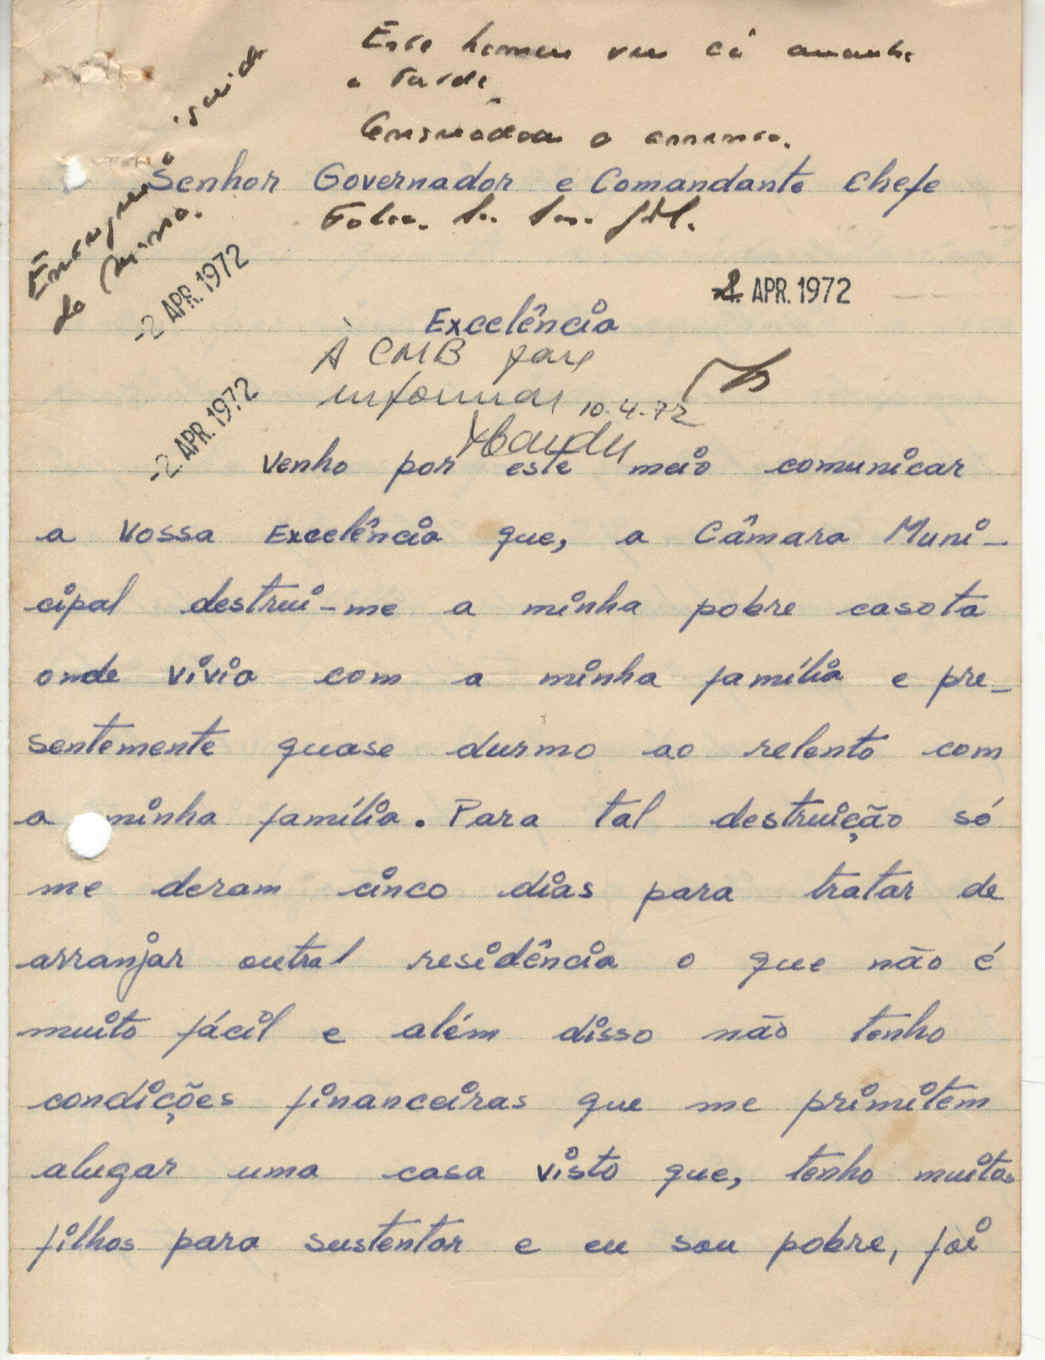 Este homem vem cá amanhã
à tarde.
Senhor Governador e Comandante Chefe
-2 APR. 1972
APR. 1972
Excelência
À CMB para
informar 10-4-72
-2 APR. 1972
Venho por este meio comunicar
a Vossa Excelência que, a Câmara Muni-
cipal destrui-me a minha pobre casota
onde vivia com a minha família e pre-
sentemente quase durmo ao relento com
a minha família. Para tal destruição só
me deram cinco dias para tratar de
arranjar outra residência o que não é
muito fácil e além disso não tenho
condições financeiras que me primitem
alugar uma casa visto que, tenho muitos
filhos para sustentar e eu sou pobre, foi